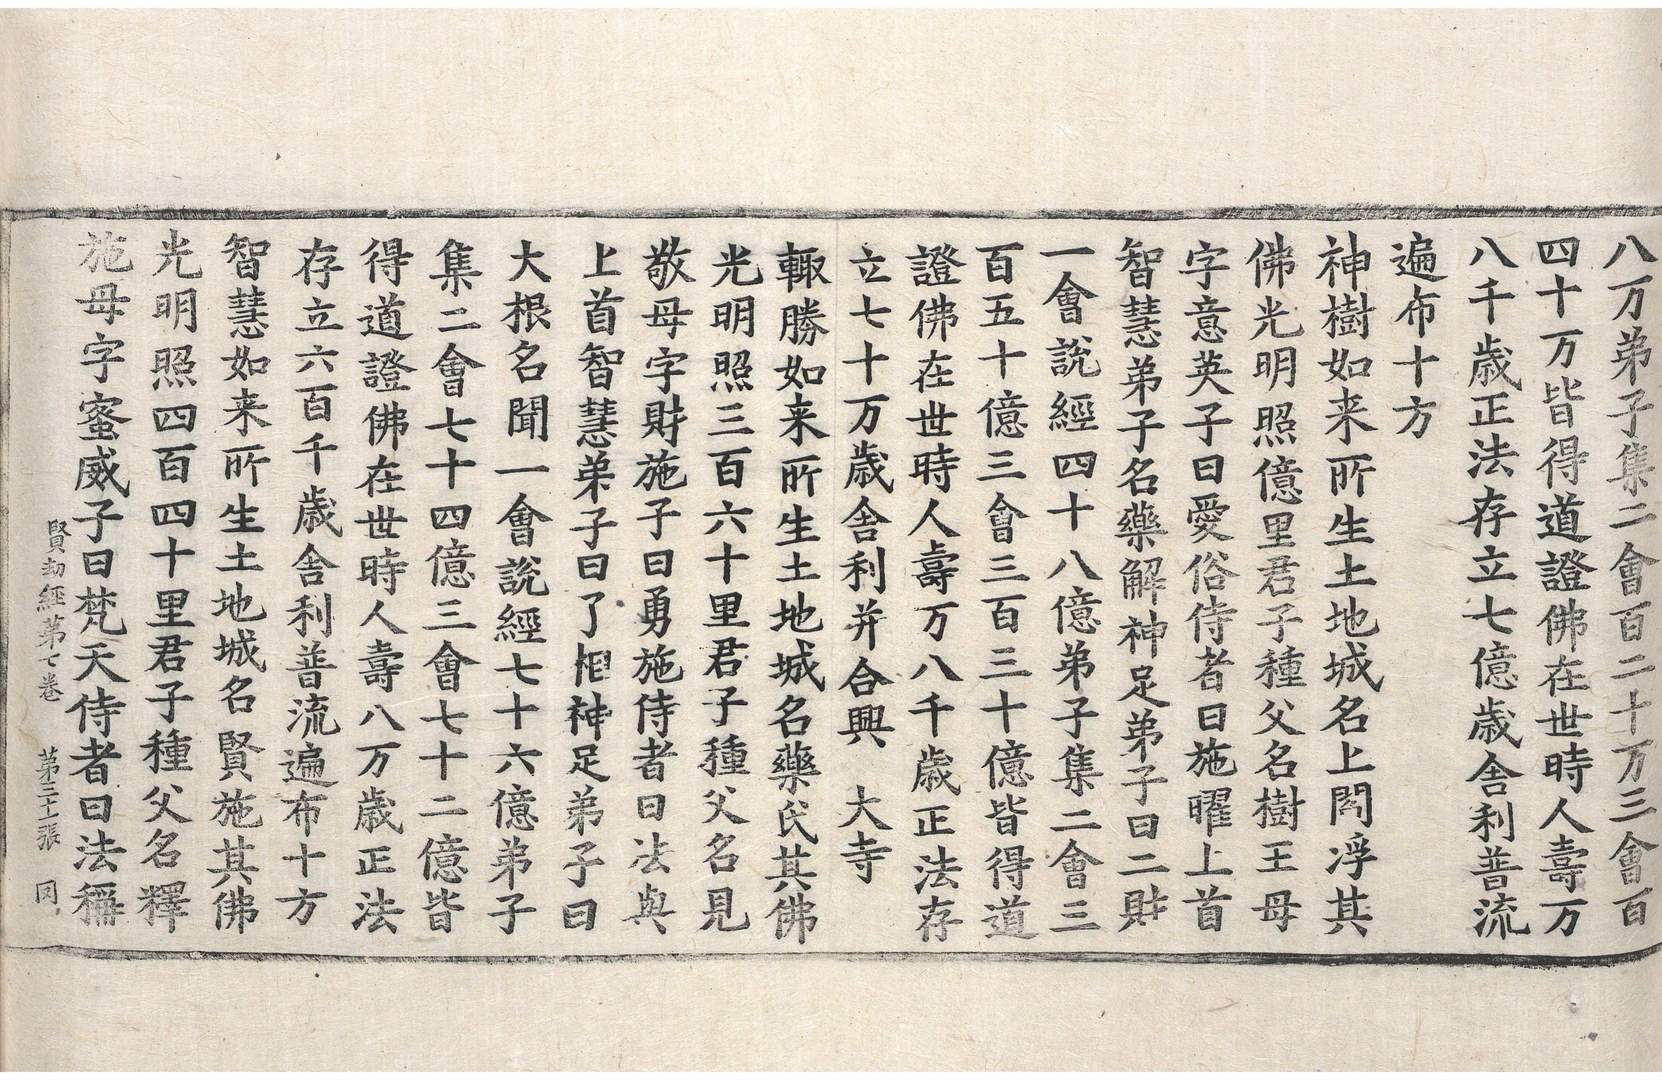 八万弟子集二會百二十万三會百
四十万皆得道證佛在世時人壽万
八千歲正法存立七億歲舍利普流
遍布十方
神樹如来所生土地城名上閻浮其
佛光明照億里君子種父名樹王母
字意英子曰愛俗侍者曰施曜上首
智慧弟子名藥解神足弟子曰二財
一會說經四十八億弟子集二會三
百五十億三會三百三十億皆得道
證佛在世時人壽万八千歲正法存
立七十万歲舍利并合興 大寺
輙勝如来所生土地城名藥氏其佛
光明照三百六十里君子種父名見
敬母字財施子曰勇施侍者曰法與
上首智慧弟子曰了相神足弟子曰
大根名聞一會說經七十六億弟子
集二會七十四億三會七十二億皆
得道證佛在世時人壽八万歲正法
存立六百千歲舍利普流遍布十方
智慧如来所生土地城名賢施其佛
光明照四百四十里君子種父名釋
施母字蜜威子曰梵天侍者曰法稱
賢劫經第七卷 第三十張 同